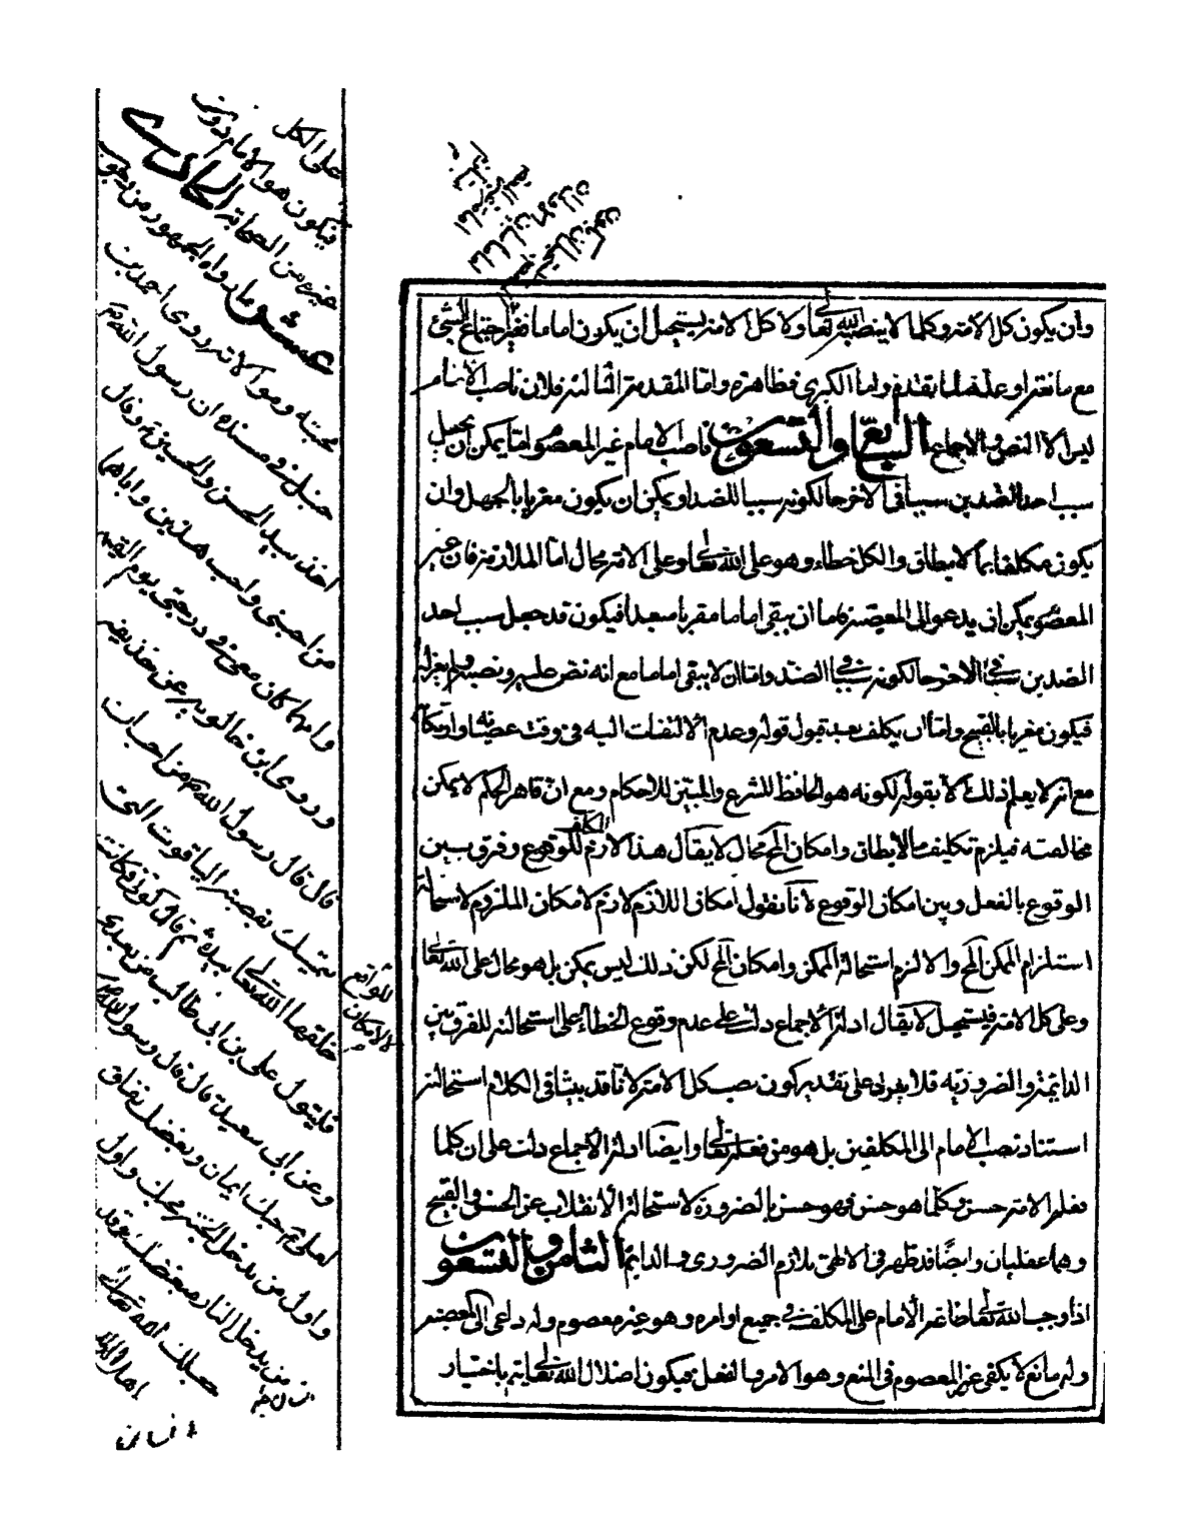 وان يكون كل الامة وكلما لا ينصبه الله تعالى ولا كل الامة يستحيل ان يكون اماما
مع واما الكبرى فظاهرة واما المقدمة الثالثة فلان ناصب الامام
ليس الا النص والاجماع السابع والتسعون ناصب الامام غير المعصوم يمكن ان يجعل
سبب احد الضدين سببا في الاخر حال كونه سببا للضد ويمكن ان يكون مغريا بالجهل وان
يكون مكلفا بما لا يطاق والكل خطاء وهو على الله تعالى وعلى الامة محال اما الملازمة فان غير
المعصوم يمكن ان يدعو الى المعصية فاما ان يبقى اماما فيكون قد جعل سبب احد
الضدين سببا في الاخر حال كونه سببا في الضد واما ان لا يبقى اماما مع انه نص عليه ونصبه ولم يعزله
فيكون مغريا بالقبيح واما ان يكلف بعد قبول قوله وعدم الالتفات اليه في وقت عصيانه
مع انه لا يعلم ذلك الا بقوله لكونه هو الحافظ للشرع والمبين للاحكام ومع انه قاهر الحكم لا يمكن
مخالفته فيلزم تكليف ما لا يطاق وامكان المح محال لا يقال هذا لازم للوقوع وفرق بين
الوقوع بالفعل وبين امكان الوقوع لانا نقول امكان اللازم لازم لامكان الملزوم لاستحالة
استلزام الممكن المح والا لزم استحالة الممكن وامكان المح لكن ذلك ليس يمكن بل هو محال على الله تعالى
وعلى كل الامة فيستحيل لا يقال ادلة الاجماع دلت على عدم وقوع الخطاء لا على استحالته للفرق بين
الدائمة والضرورية فلا على تقدير كون نصب كل الامة لانا قد بينا في الكلام استحالة
استناد نصب الامام الى المكلفين بل هو من فعله تعالى وايضا ادلة الاجماع دلت على ان كلما
فعله الامة حسن وكلما هو حسن فهو حسن بالضرورة لاستحالة الانقلاب عن الحسن والقبيح
وهما عقليان وايضا قد ظهر في الالهى تلازم الضرورى والدايم الثامن والتسعون
اذا اوجب الله تعالى طاعة الامام على المكلف في جميع اوامره وهو غير معصوم وله داعى الى المعصية
وله مانع لا يكفى غير المعصوم في المنع وهو الامر بها لفعل فيكون اضلال الله تعالى يتم باختيار
للواقع
لا لامكان
على الكل
فيكون هو الامام دون
غيره من الصحابة الحادى
عشر ما رواه الجمهور من وجوب
محبته وموالاته روى احمد بن
حنبل في مسنده ان رسول الله ص
اخذ بيد الحسن والحسين وقال
من احبنى واحب هذين واباهما
وامهما كان معى في درجتى يوم القيمة
وروى ابن خالويه عن حذيفة
قال قال رسول الله ص من احب ان
يتمسك بقصبة الياقوت التى
خلقها الله تعالى بيده ثم قال كونى فكانت
فليتول على بن ابى طالب من بعدى
وعن ابى سعيد قال قال رسول الله ص
لعلى حبك ايمان وبغضك نفاق
واول من يدخل الجنة محبك واول
من يدخل النار مبغضك وقد
جعلك الله تعالى